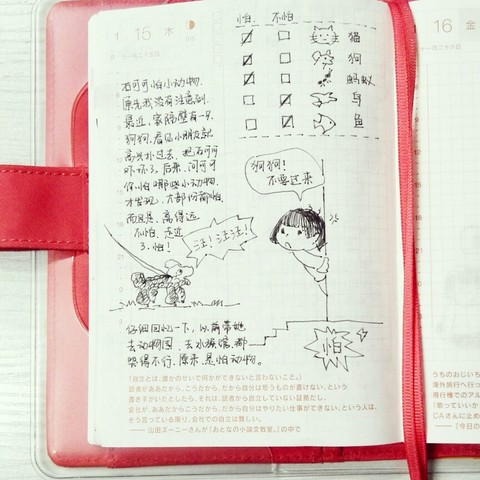 1 15 木
16 金
怕. 不怕.
猫
狗
蚂蚁
鸟
鱼
石可可怕小动物.
原先我没有注意到.
最近,家隔壁有一只
狗狗,看似小朋友就
高兴扑过去,把石可可
吓坏了,后来,问可可
你怕哪些小动物,
才发现,大部份都怕,
而且是,离得远
不怕,走近
了,怕!
狗狗!
不要过来
汪!汪汪!
仔细回忆一下,以前带她
去动物园、去水族馆,都
哭得不行,原来,是怕动物。
怕
「自立とは、誰かのせいで何かができないと言わないこと。」
読者がああだから、こうだから、だから自分は思うものが書けない、という
書き手がいたとしたら、それは、読者から自立していない証拠だし、
会社が、ああだからこうだから自分はやりたい仕事ができない、という人は、
そう言っている限り、会社での自立は難しい。
—— 山田ズーニーさんが『おとなの小論文教室。』の中で
うちのおじいち
海外旅行へ行っ
飛行機でのアル
「歌っていいか
CAさんに止め
——『今日の